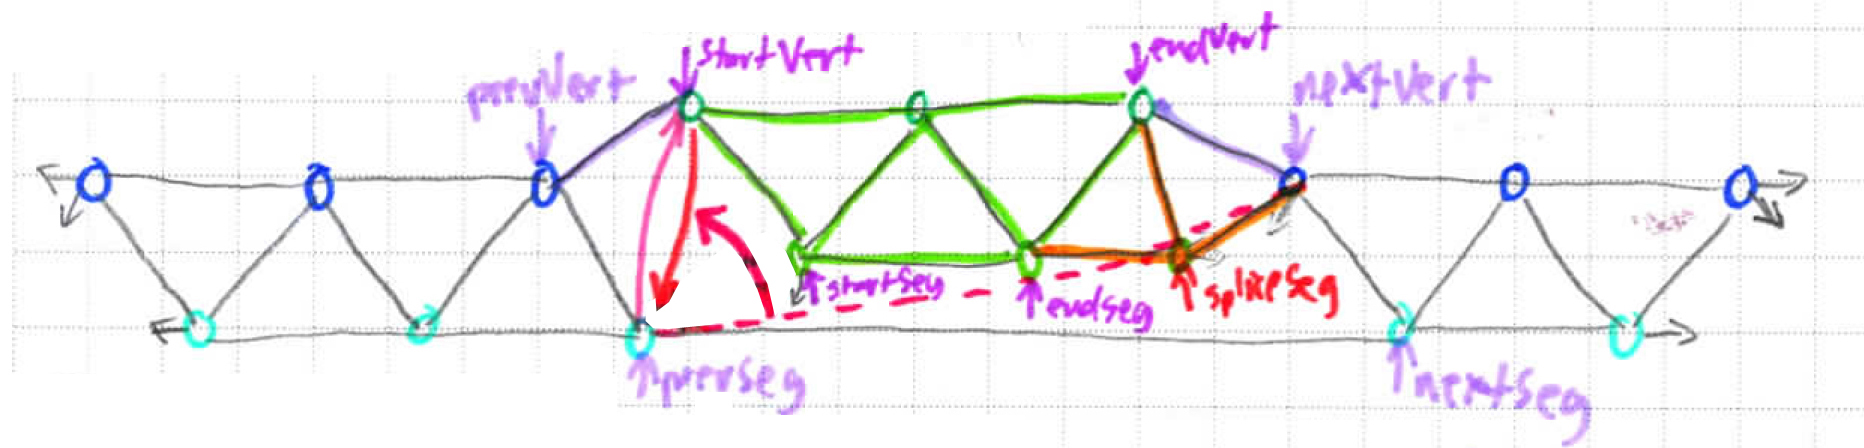 startVert
endVert
prevVert
nextVert
startSeg
endSeg
spliceSeg
prevSeg
nextSeg